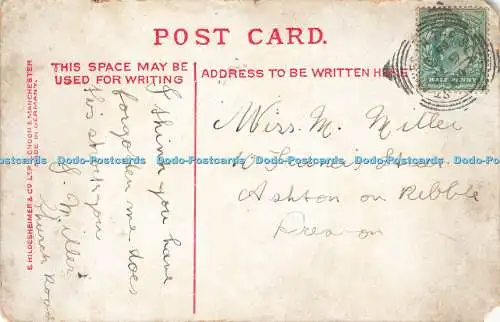 POST CARD.
THIS SPACE MAY BE
USED FOR WRITING
ADDRESS TO BE WRITTEN HERE
S. HILDESHEIMER & CO. LTD. LONDON & MANCHESTER
MADE IN GERMANY.
HALF PENNY
I think you have
forgotten me does
this shock you
J. Miller
Church Road
Miss. M. Miller
Francis Street
Ashton on Ribble
Preston
Dodo-Postcards Dodo-Postcards Dodo-Postcards Dodo-Postcards Dodo-Postcards